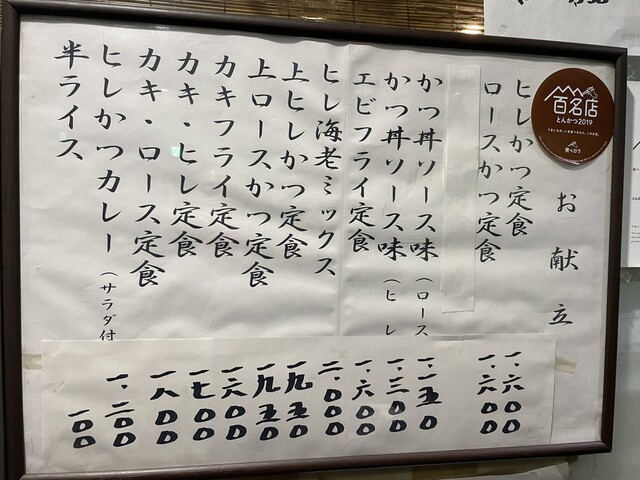 百名店
とんかつ2019
食べログ
お献立
ヒレかつ定食 一、六〇〇
ロースかつ定食 一、六〇〇
かつ丼ソース味（ロース 一、一五〇
かつ丼ソース味（ヒレ 一、三〇〇
エビフライ定食 一、六〇〇
ヒレ海老ミックス 二、〇〇〇
上ヒレかつ定食 一九五〇
上ロースかつ定食 一九五〇
カキフライ定食 一六〇〇
カキ・ヒレ定食 一七〇〇
カキ・ロース定食 一八〇〇
ヒレかつカレー（サラダ付 一、二〇〇
半ライス 一〇〇